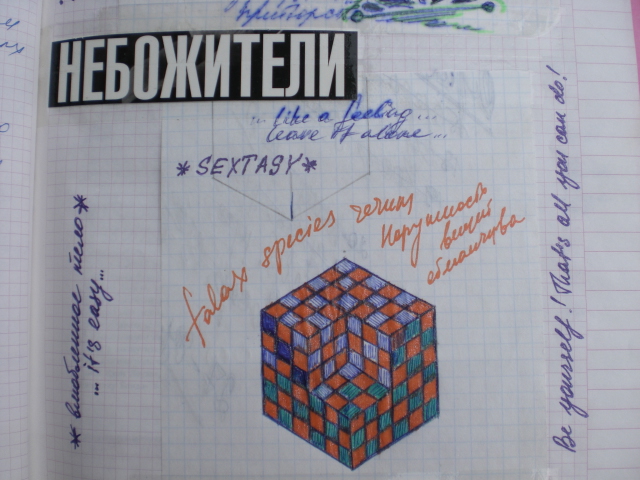 НЕБОЖИТЕЛИ
...like a feeling...
leave it alone...
*SEXTASY*
falax species rerum
Наружность
вещей
обманчива
*влюбленное тело*
...it's easy...
Be yourself! That's all you can do!